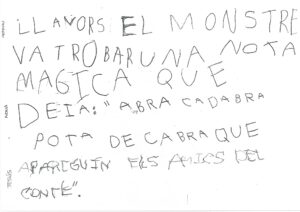 ¡LLAVORS EL MONSTRE
VATROBAR UNA NOTA
MAGICA QUE
DEIA: "ABRA CADABRA
POTA DE CABRA QUE
APAREGUIN ELS AMICS DEL
CONTE".